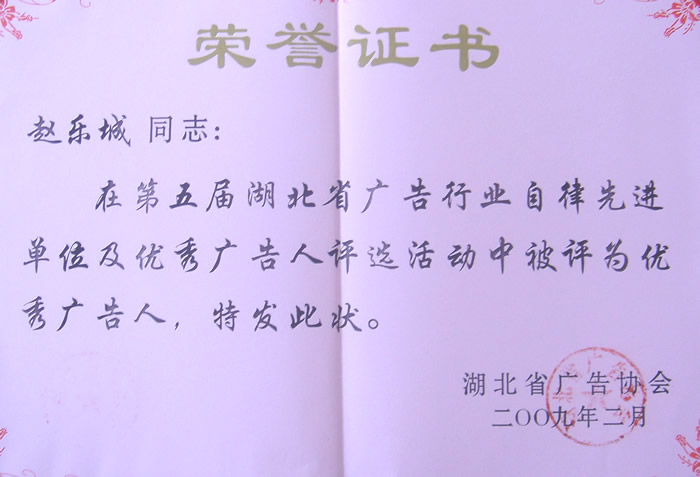 荣誉证书
赵乐城 同志：
在第五届湖北省广告行业自律先进
单位及优秀广告人评选活动中被评为优
秀广告人，特发此状。
湖北省广告协会
二〇〇九年二月